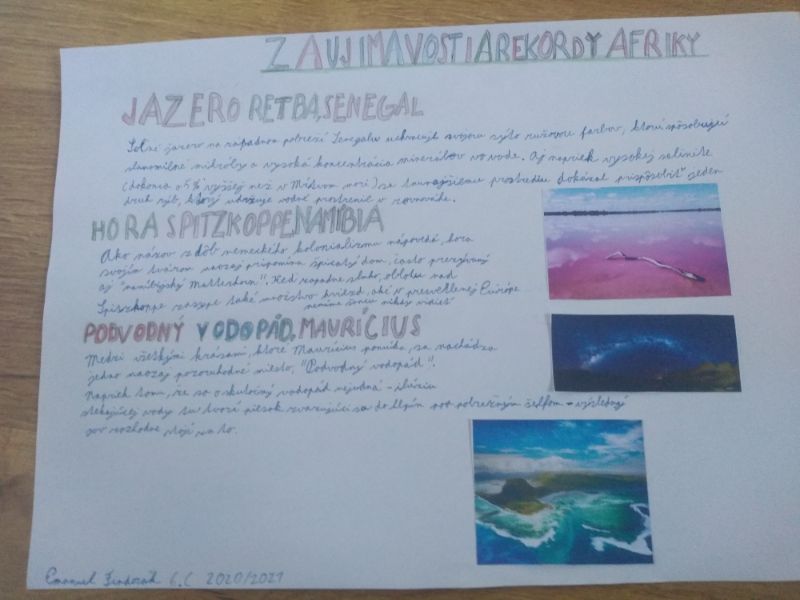 ZAUJIMAVOSTI A REKORDY AFRIKY
JAZERO RETBA, SENEGAL
Soľné jazero na západnom pobreží Senegalu uchvacuje svojou sýto ružovou farbou, ktorú spôsobujú
slanomilné mikróby a vysoká koncentrácia minerálov vo vode. Aj napriek vysokej salinite
(dokonca o 5% vyššej než v Mŕtvom mori) sa tunajšiemu prostrediu dokázal prispôsobiť jeden
druh rýb, ktorý udržuje vodné prostredie v rovnováhe.
HORA SPITZKOPPE, NAMÍBIA
Ako názov z dôb nemeckého kolonializmu napovedá, hora
svojím tvarom naozaj pripomína špicatý dóm, často prezývaný
aj "namibijský Matterhorn". Keď zapadne slnko, oblohu nad
Spitzkoppe zasype také množstvo hviezd, aké v presvetlenej Európe
nemáme šancu nikdy vidieť
PODVODNÝ VODOPÁD, MAURÍCIUS
Medzi všetkými krásami, ktoré Maurícius ponúka, sa nachádza
jedno naozaj pozoruhodné miesto, "Podvodný vodopád".
Napriek tomu, že sa o skutočný vodopád nejedná - ilúziu
stekajúcej vody tu tvorí piesok zvažujúci sa do hlbín pod pobrežným šelfom - výsledný
jav rozhodne stojí za to.
Emanuel 6.C 2020/2021